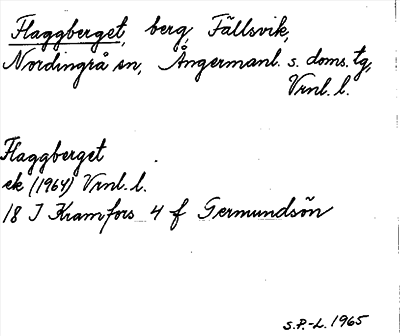 Flaggberget, berg, Fällsvik,
Nordingrå sn, Ångermanl. s. doms. tg,
Vrnl. l.
Flaggberget
ek (1964) Vrnl. l.
18 I Kramfors 4 f Germundsön
S.P.-L. 1965